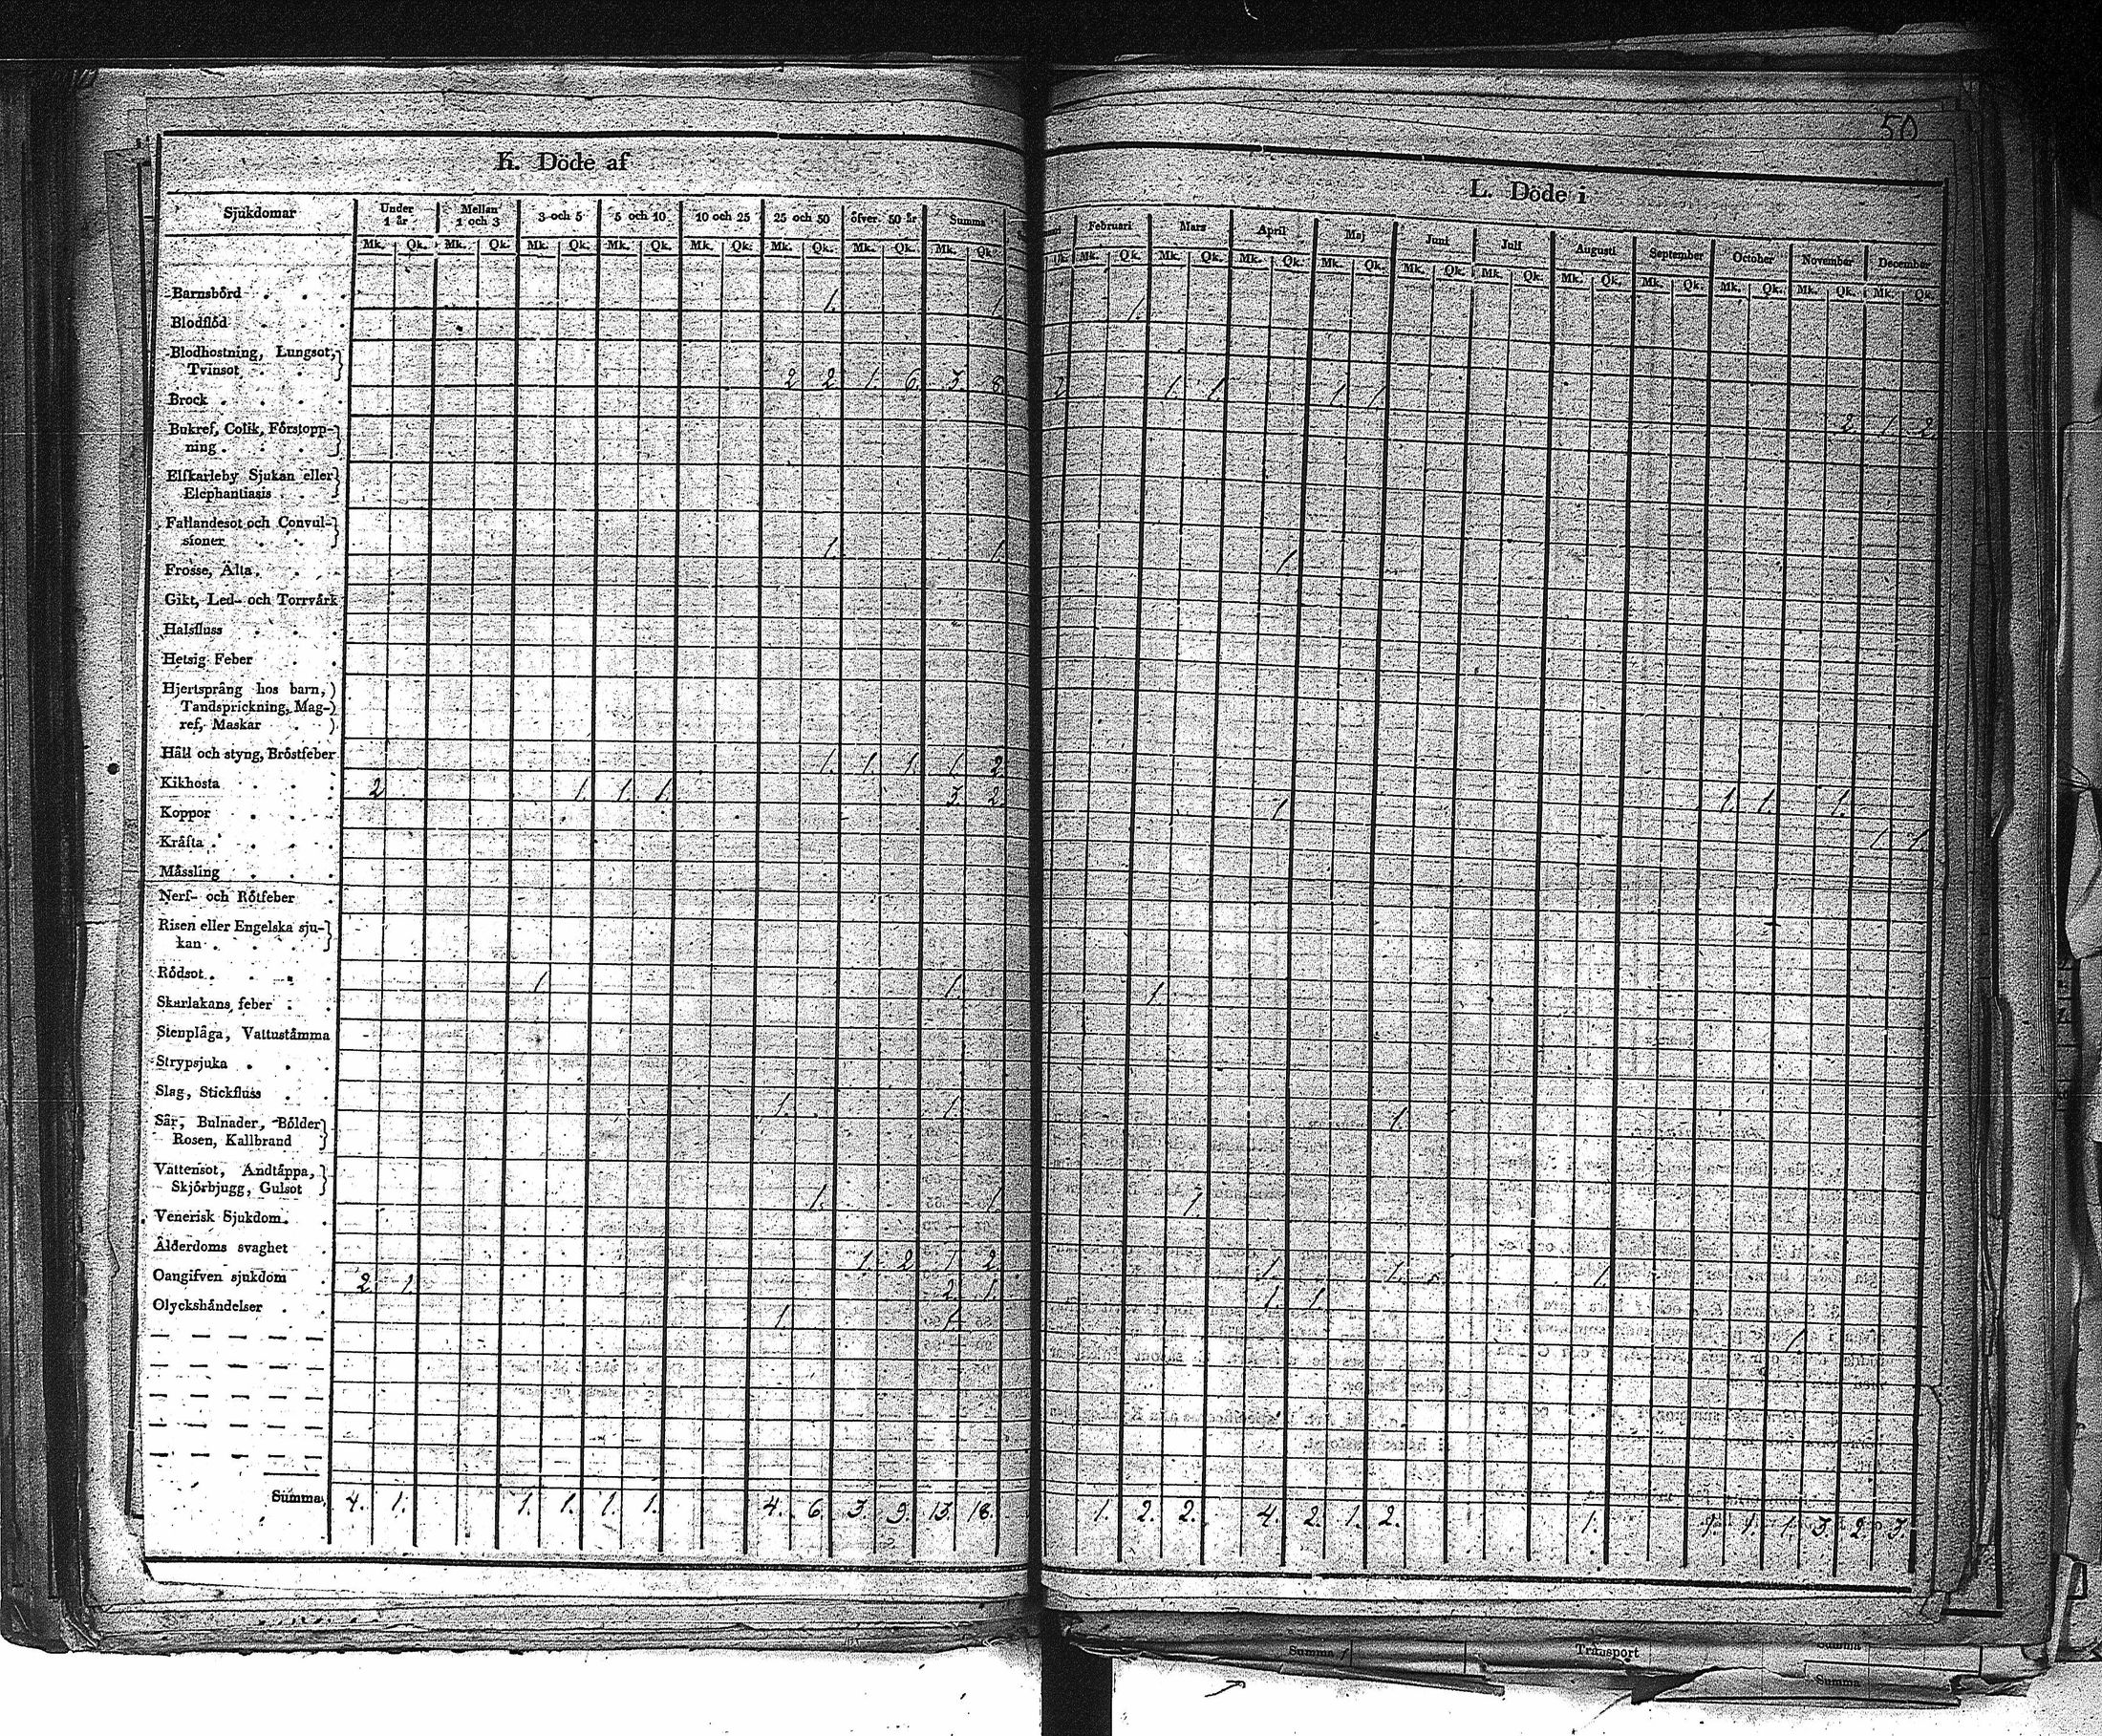 50
K. Döde af
Sjukdomar Under 1 år Mellan 1 och 3 3 och 5 5 och 10 10 och 25 25 och 50 öfver 50 år Summa
Mk. Qk. Mk. Qk. Mk. Qk. Mk. Qk. Mk. Qk. Mk. Qk. Mk. Qk. Mk. Qk.
Barnsbörd 1. 1.
Blodflöd
Blodhostning, Lungsot,
Tvinsot 2 2 1. 6 3 8
Brock
Bukref, Colik, Förstopp-
ning
Elfkarleby Sjukan eller
Elephantiasis
Fallandesot och Convul-
sioner 1. 1.
Frosse, Älta
Gikt, Led- och Torrvärk
Halsfluss
Hetsig Feber
Hjertsprång hos barn,
Tandsprickning, Mag-
ref, Maskar
Håll och styng, Bröstfeber 1. 1. 1. 1. 2
Kikhosta 2 1. 1. 1. 3. 2.
Koppor
Kräfta
Mässling
Nerf- och Rötfeber
Risen eller Engelska sju-
kan
Rödsot 1 1.
Skarlakans feber
Stenplåga, Vattustämma
Strypsjuka
Slag, Stickfluss 1. 1.
Sår, Bulnader, Bölder
Rosen, Kallbrand
Vattensot, Andtäppa,
Skjörbjugg, Gulsot 1. 1.
Venerisk Sjukdom
Ålderdoms svaghet 1. 2 1 2.
Oangifven sjukdom 2. 1. 2. 1.
Olyckshändelser 1. 1.
Summa 4. 1. 1. 1. 1. 1. 4. 6. 3. 9. 13. 18.
L. Döde i
Februari Mars April Maj Juni Juli Augusti September October November December
Qk. Mk. Qk. Mk. Qk. Mk. Qk. Mk. Qk. Mk. Qk. Mk. Qk. Mk. Qk. Mk. Qk. Mk. Qk. Mk. Qk. Mk. Qk.
1.
2 1. 1 1. 1.
2. 1. 2.
1.
1 1. 1. 1.
1. 1.
1
1.
1
1. 1. 1.
1. 1.
1.
1. 2. 2. 4. 2. 1. 2. 1. 1. 1. 1. 3. 2. 3.
Summa Transport Summa
Summa